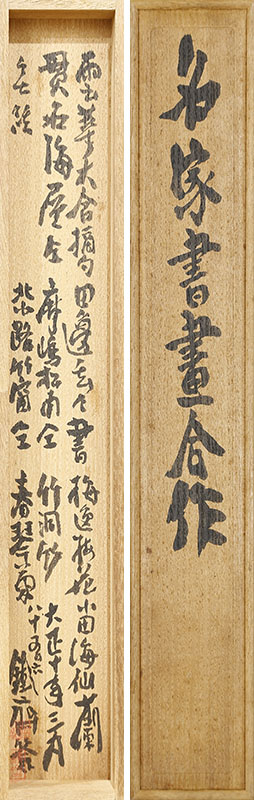 名家書畫合作
雲華大含摘句 田邊玄々書 梅逸梅花 小田海仙蘭
貫名海屋仝 摩嶋松南仝 竹洞竹 大正十年三月
北小路竹窗仝 春琴菊 八十六 鐵齋